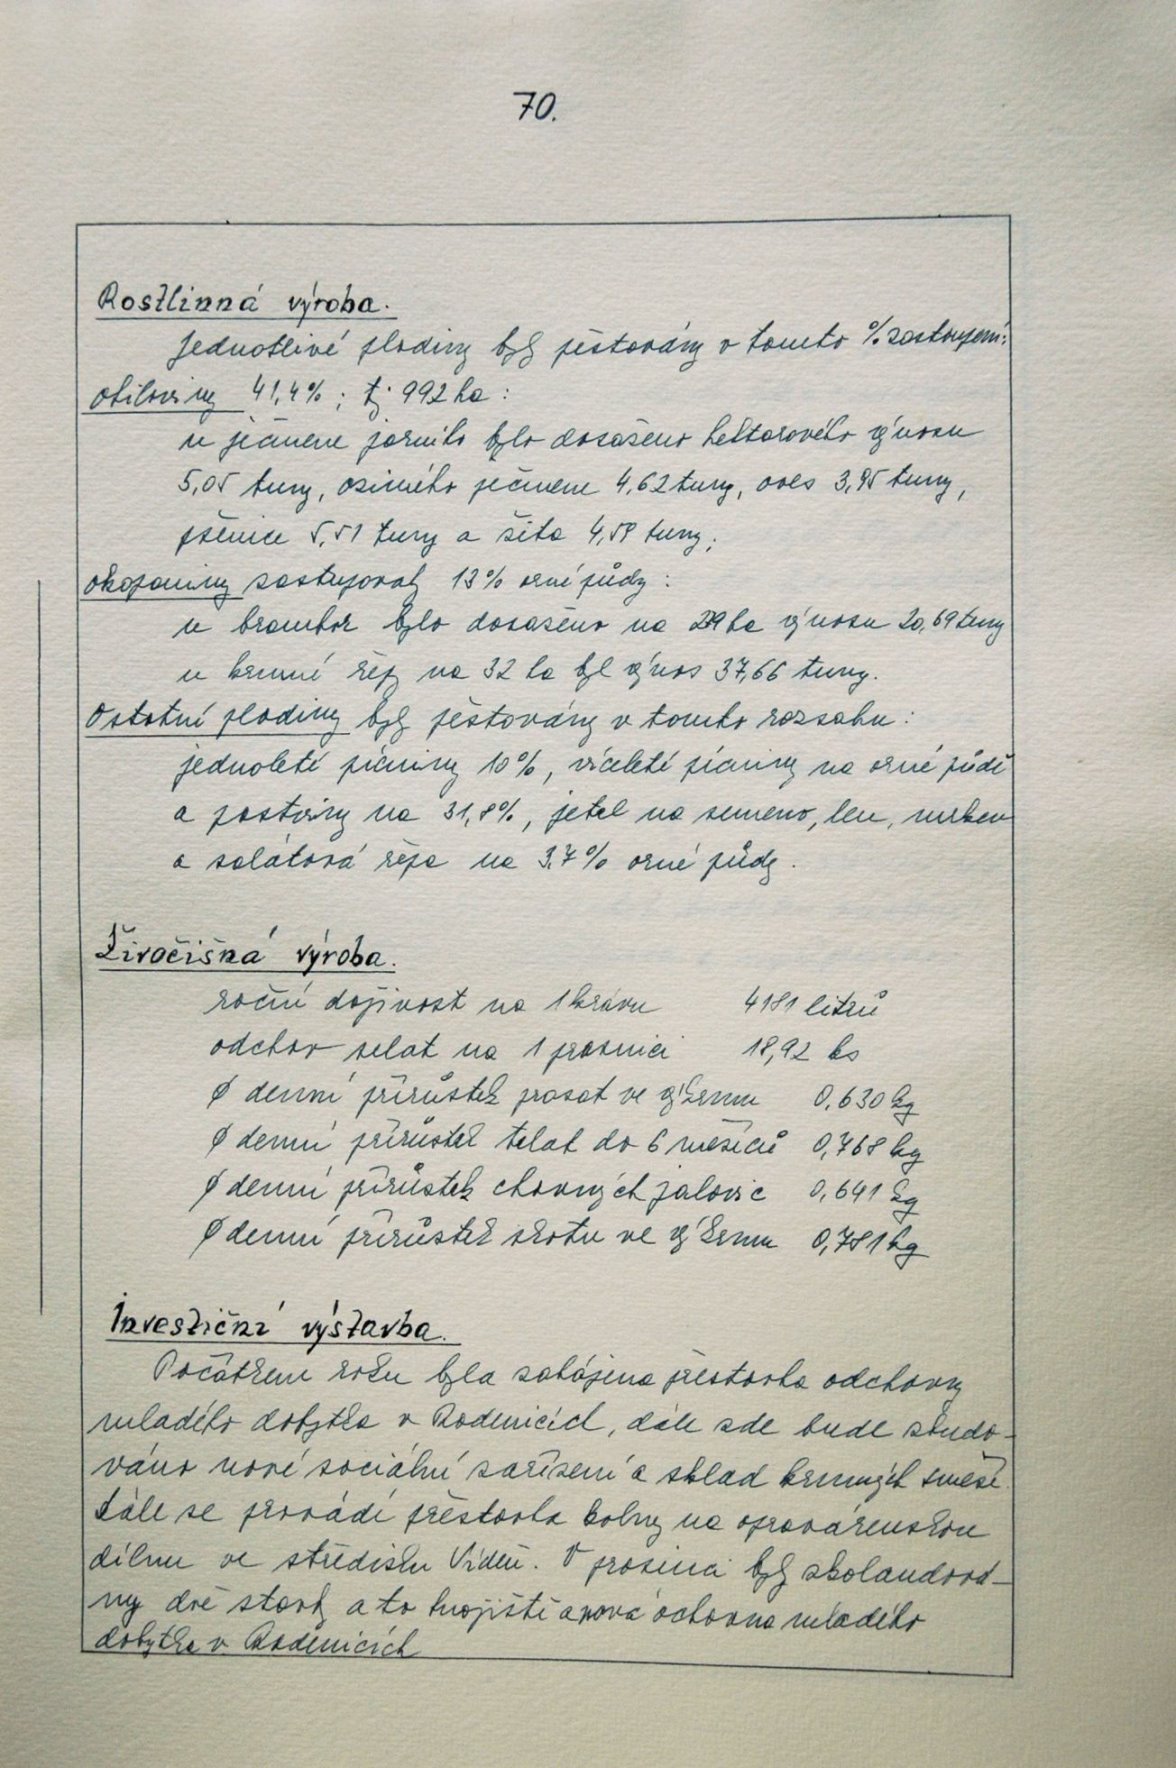 70.
Rostlinná výroba.
Jednotlivé plodiny byly pěstovány v tomto % zastoupení:
obiloviny 41,4% ; tj. 992 ha :
u ječmene jarního bylo dosaženo hektarového výnosu
5,05 tuny, ozimého ječmene 4,62 tuny, oves 3,95 tuny,
pšenice 5,51 tuny a žita 4,58 tuny ;
okopaniny zastupovaly 13% orné půdy :
u brambor bylo dosaženo na ha výnosu 20,69 tuny
u krmné řepy na 32 ha byl výnos 37,66 tuny.
Ostatní plodiny byly pěstovány v tomto rozsahu :
jednoleté pícniny 10%, víceleté pícniny na orné půdě
a pastviny na 31,8%, jetel na semeno, len, mrkev
a salátová řepa na 3,7% orné půdy.
Živočišná výroba.
roční dojivost na 1 krávu 4181 litrů
odchov selat na 1 prasnici 18,92 ks
Ø denní přírůstek prasat ve výkrmu 0,630 kg
Ø denní přírůstek telat do 6 měsíců 0,768 kg
Ø denní přírůstek chovných jalovic 0,641 kg
Ø denní přírůstek skotu ve výkrmu 0,781 kg
Investiční výstavba.
Počátkem roku byla zahájena přestavba odchovny
mladého dobytka v Radenicích, dále zde bude zbudo-
váno nové sociální zařízení a sklad krmných směsí.
Dále se provádí přestavba kolny na opravárenskou
dílnu ve středisku Vídeň. V prosinci byly zkolaudová-
ny dvě stavby a to hnojiště a nová odchovna mladého
dobytka v Radenicích